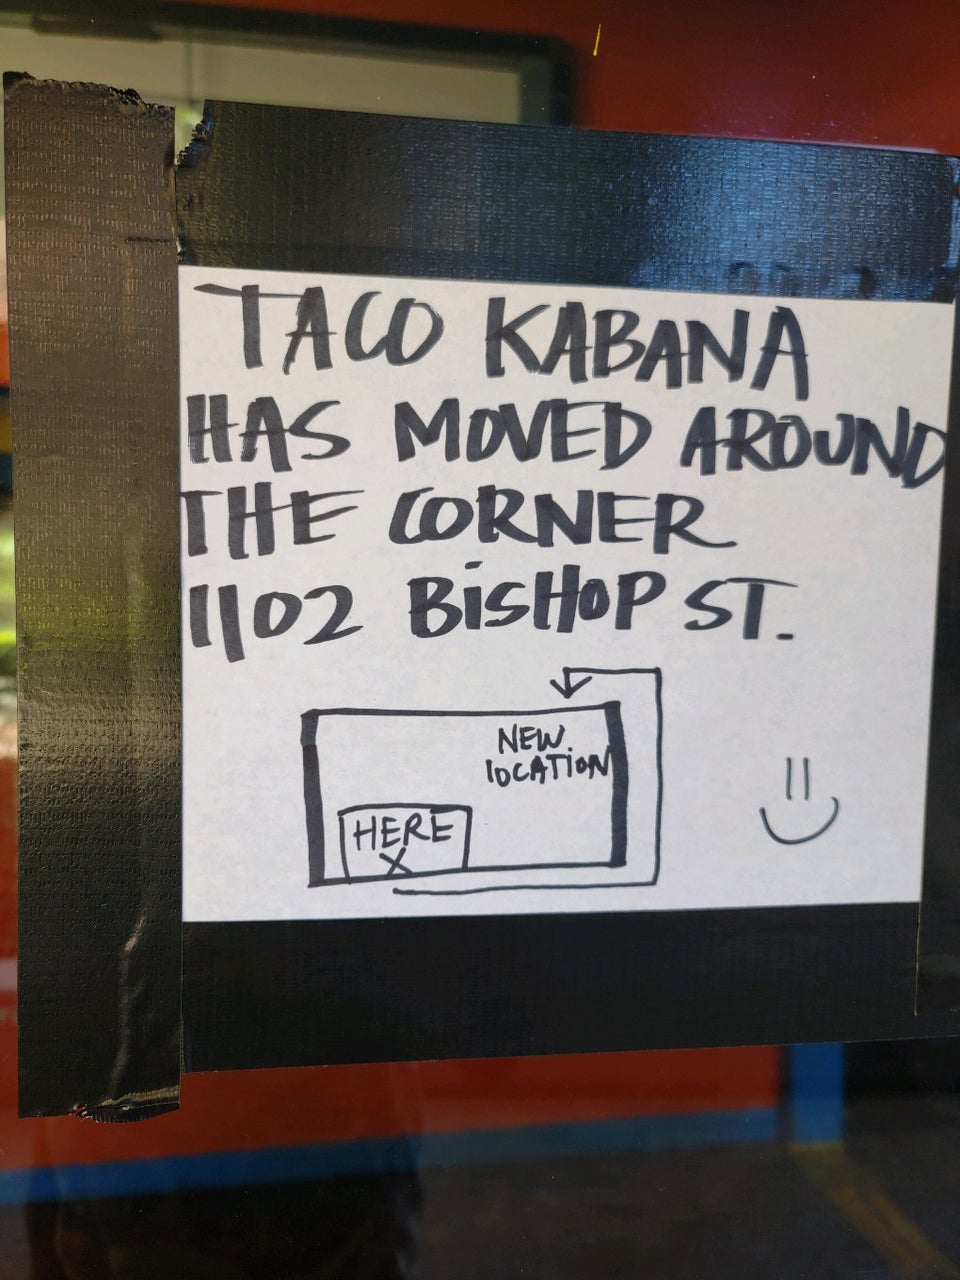 TACO KABANA
HAS MOVED AROUND
THE CORNER
1102 BiSHOP ST.
NEW
lOCATiON
HERE
X